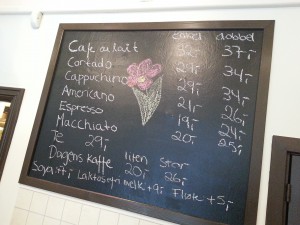 enkel dobbel
Cafe au lait 32,- 37,-
Cortado 29,- 34,-
Cappuchino 29,- 34,-
Americano 21,- 26,-
Espresso 19,- 24,-
Macchiato 20,- 25,-
Te 29,-
liten Stor
Dagens kaffe 20,- 26,-
Soya Laktosefri melk +9,- Fløte +5,-